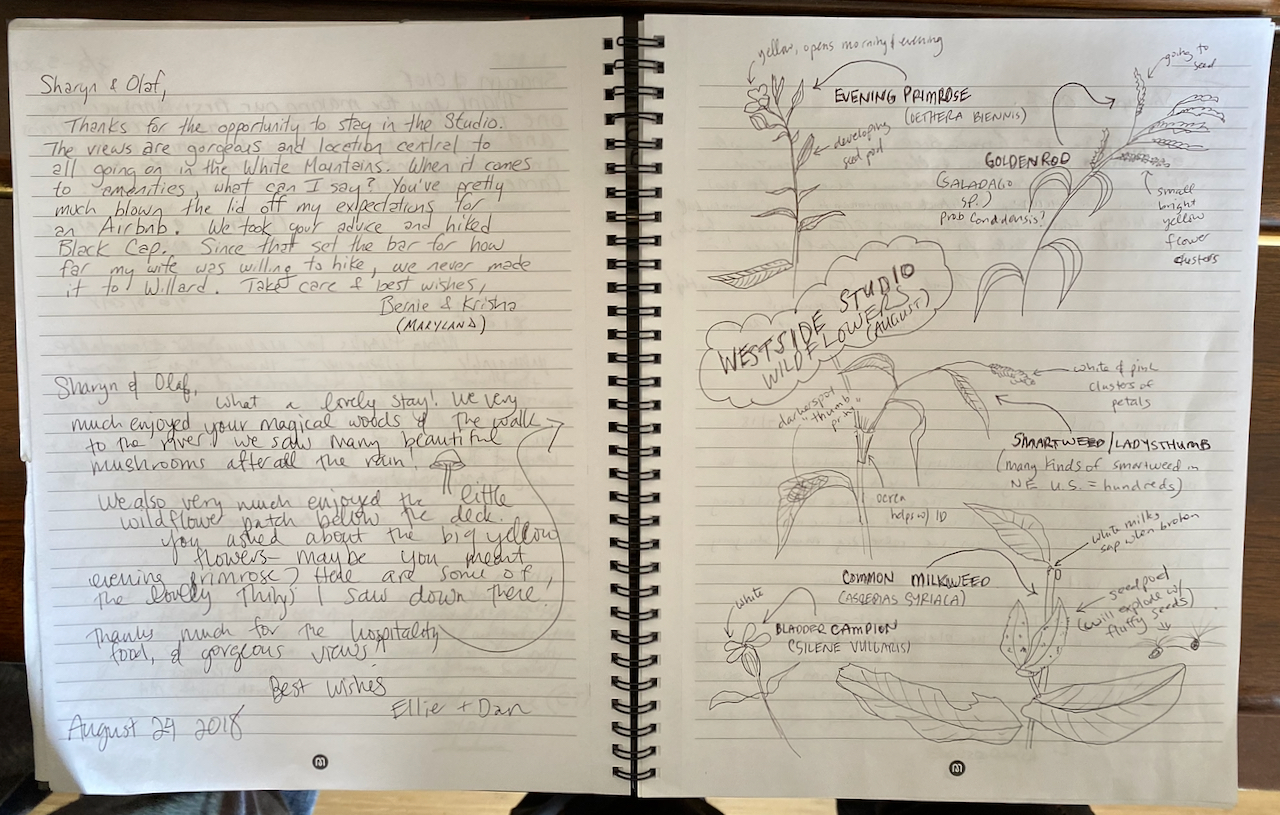 Sharyn & Olaf,
Thanks for the opportunity to stay in the Studio.
The views are gorgeous and location central to
all going on in the White Mountains. When it comes
to amenities, what can I say? You've pretty
much blown the lid off my expectations for
an Airbnb. We took your advice and hiked
Black Cap. Since that set the bar for how
far my wife was willing to hike, we never made
it to Willard. Take care & best wishes,
Bernie & Krisha
(MARYLAND)
Sharyn & Olaf,
What a lovely stay! We very
much enjoyed your magical woods & the walk
to the river, we saw many beautiful
mushrooms after all the rain!
We also very much enjoyed the little
wildflower patch below the deck.
You asked about the big yellow
flowers- maybe you meant
evening primrose? Here are some of
the lovely things I saw down there!
Thanks much for the hospitality
food, & gorgeous views!
Best Wishes
Ellie + Dan
August 24 2018
yellow, opens morning & evening
EVENING PRIMROSE
(OETHERA BIENNIS)
developing
seed pod
going to
seed
GOLDENROD
(SALADAGO
sp.)
prob Canadensis?
small
bright
yellow
flower
clusters
WESTSIDE STUDIO
WILDFLOWERS
(AUGUST)
dark spot
"thumb
print"
white & pink
clusters of
petals
SMARTWEED/LADYSTHUMB
(many kinds of smartweed in
NE U.S. = hundreds)
ocrea
helps w/ ID
white milky
sap when broken
COMMON MILKWEED
(ASCLEPIAS SYRIACA)
seed pod
(will explode w/
fluffy seeds)
white
BLADDER CAMPION
(SILENE VULGARIS)